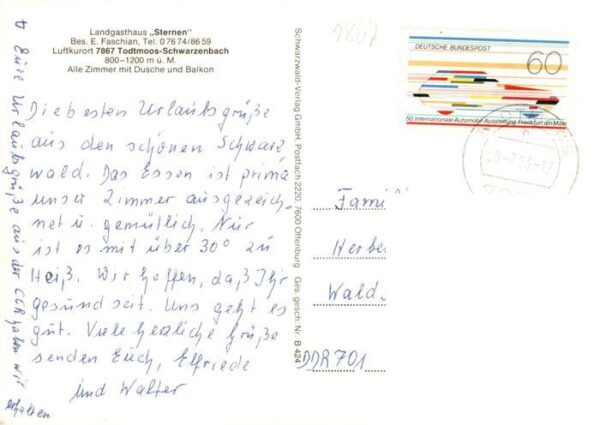 Landgasthaus „Sternen"
Bes. E. Faschian, Tel. 0 76 74 / 86 59
Luftkurort 7867 Todtmoos-Schwarzenbach
800–1200 m ü. M.
Alle Zimmer mit Dusche und Balkon
Die besten Urlaubsgrüße
aus den schönen Schwarz
wald. Das Essen ist prima
unser Zimmer ausgezeich-
net u. gemütlich. Nur
ist es mit über 30° zu
Heiß. Wir hoffen, daß Ihr
gesund seit. Uns geht es
gut. Viele herzliche Grüße
senden Euch, Elfriede
und Walter
Eure Urlaubsgrüße aus der haben wir
erhalten
Schwarzwald-Verlag GmbH, Postfach 2220, 7600 Offenburg Ges. gesch. Nr. B 424
DEUTSCHE BUNDESPOST
60
50. Internationale Automobil-Ausstellung Frankfurt am Main
Famili
Herbe
Wald
DDR 701